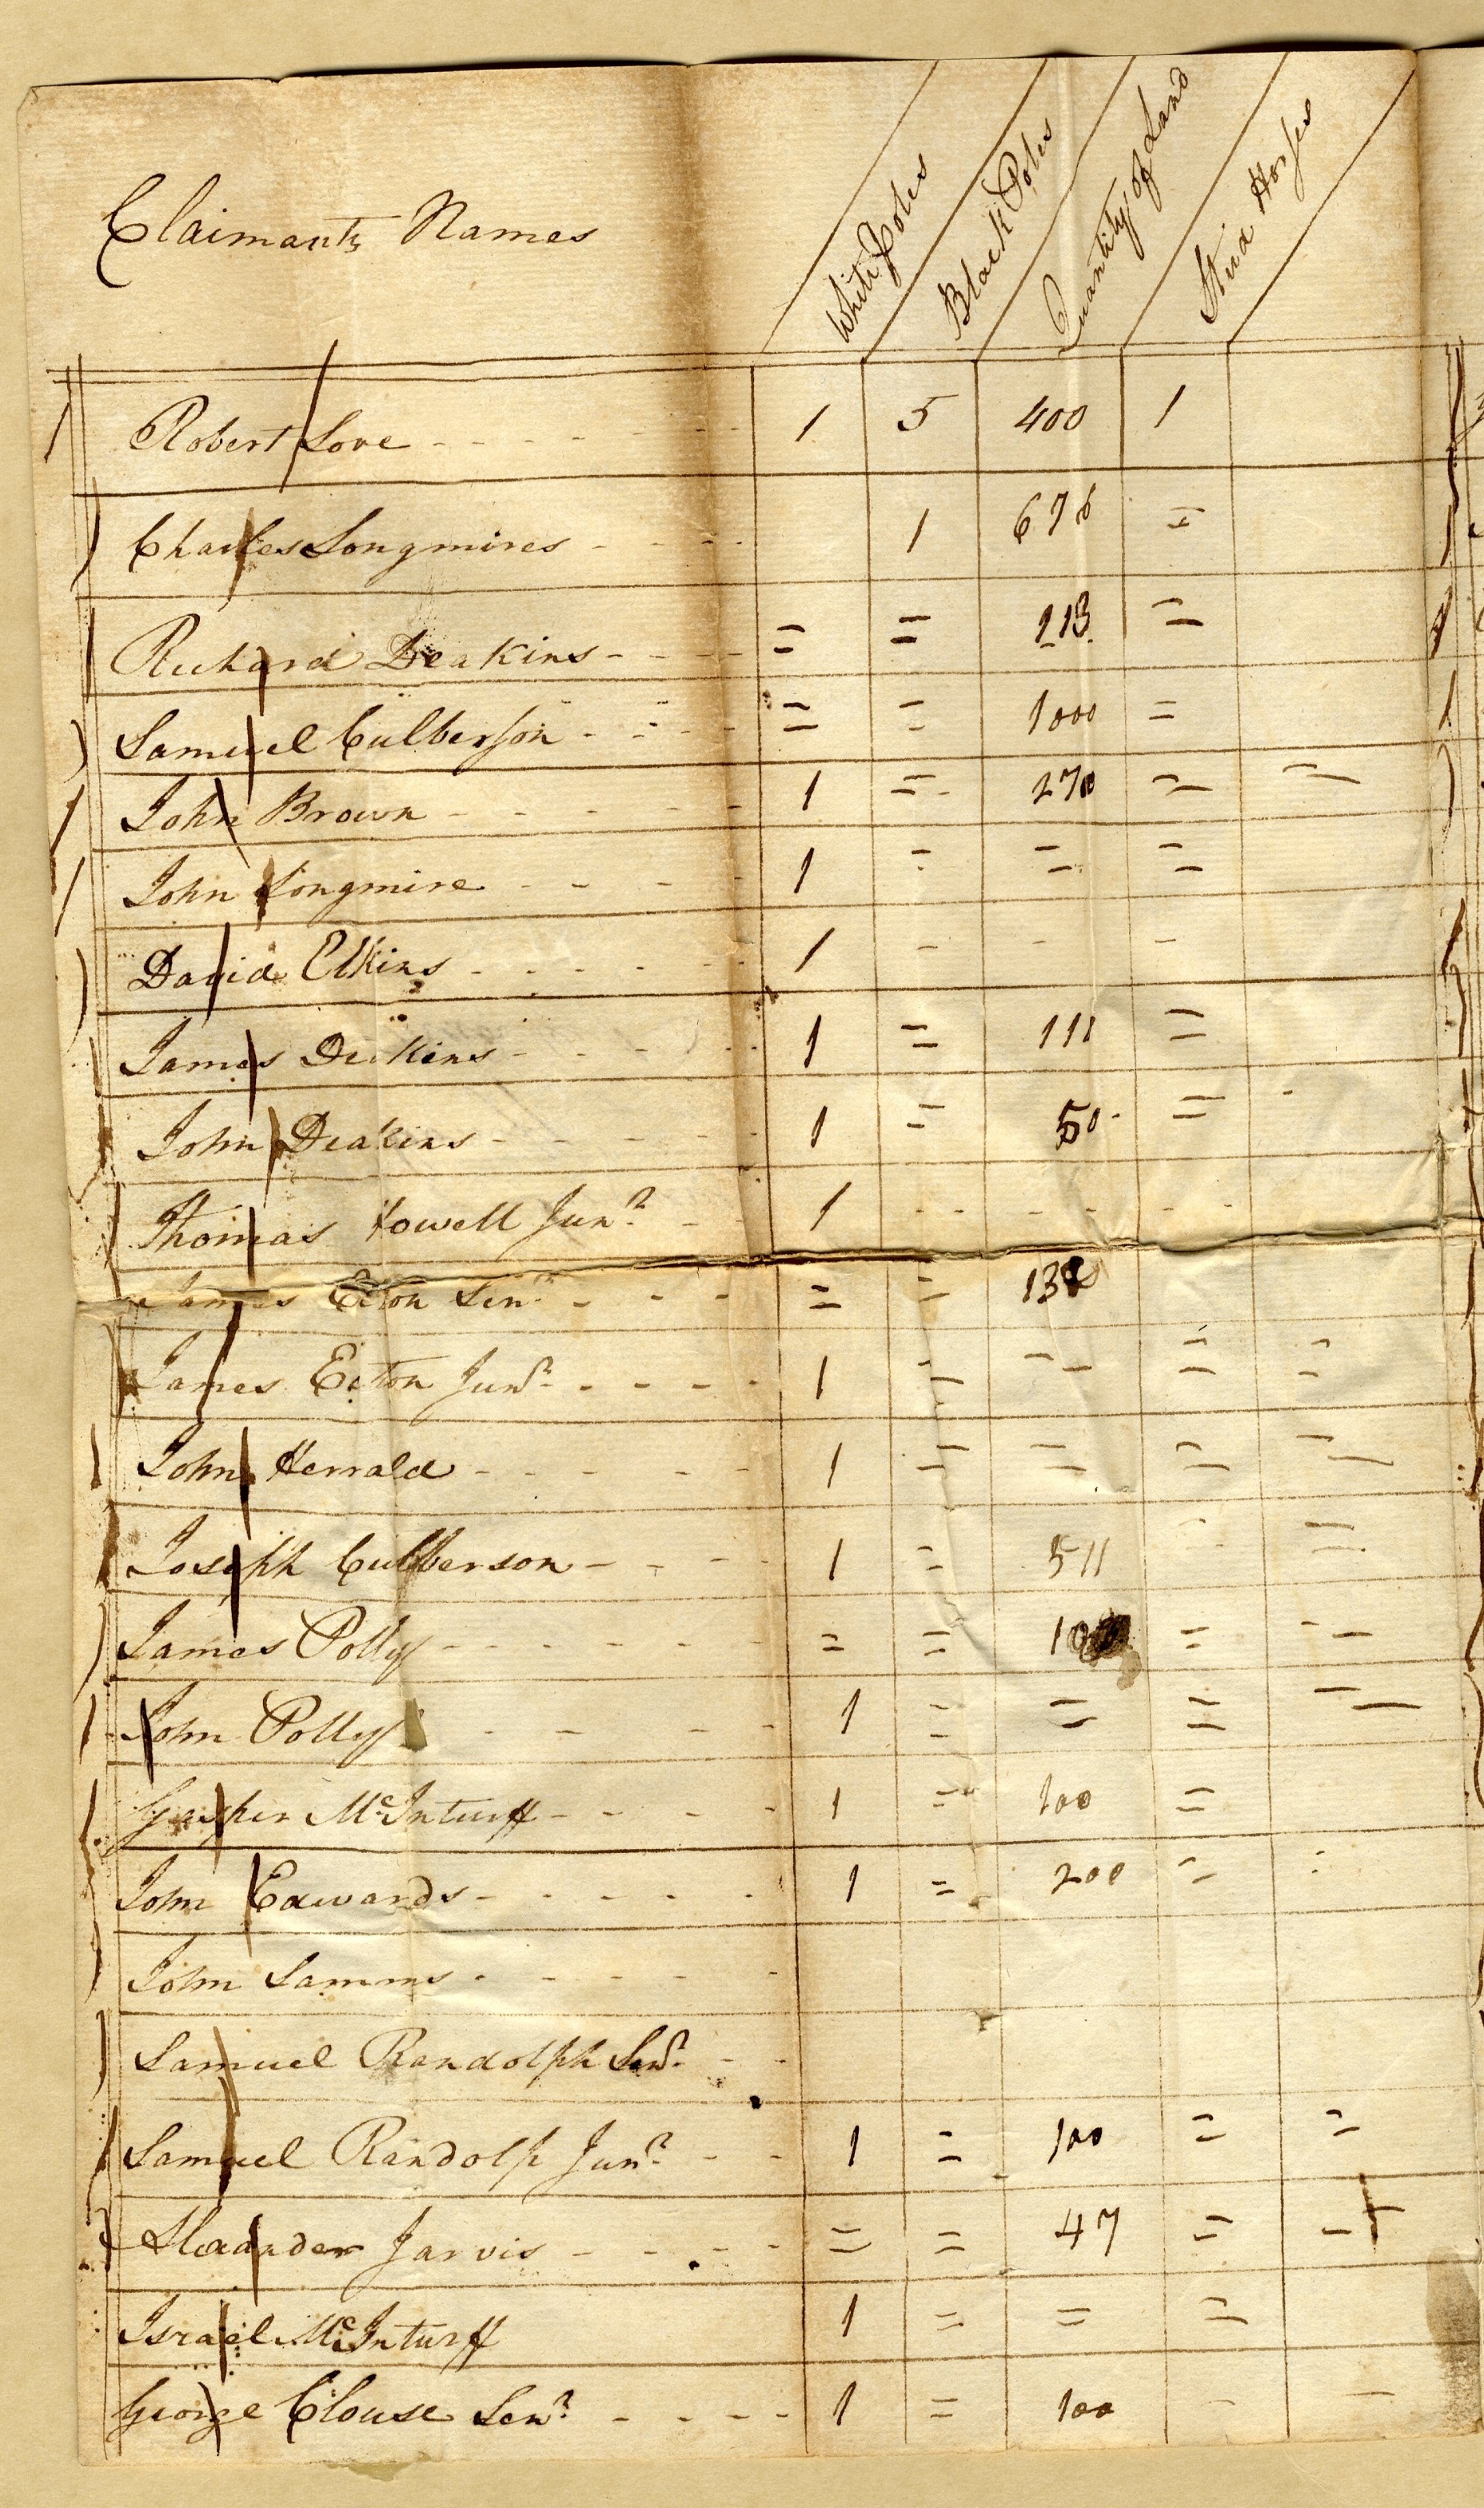 Claimants Names White Poles Black Poles Quantity of Land Stud Horses
Robert Love - - - - - - - 1 5 400 1
Charles Longmires - - - - 1 678 =
Richard Deakins - - - - = = 113 =
Samuel Culberson - - - - = = 1000 =
John Brown - - - - - - 1 = 270 = =
John Longmire - - - - 1 = = =
David Elkins - - - - - - 1 - - -
James Deakins - - - - - 1 = 111 =
John Deakins - - - - - - 1 = 50 = -
Thomas Howell Junr. - - 1 - - - - - -
James Ecton Senr. - - - = = 138
James Ecton Junr. - - - - - 1 = = = =
John Herrald - - - - - 1 = = = =
Joseph Culberson - - - - 1 = 511 - =
James Polly - - - - - - = = 100 = =
John Polly - - - - 1 = = = =
Gasper McInturff - - - - 1 = 100 =
John Edwards - - - - - - 1 = 200 = -
John Samms - - - - -
Samuel Randolph Senr. - -
Samuel Randolp Junr. - - 1 = 100 = =
Alexander Jarvis - - - - - = = 47 = -
Israel McInturff 1 = = =
George Clouse Senr. - - - - 1 = 100 - -